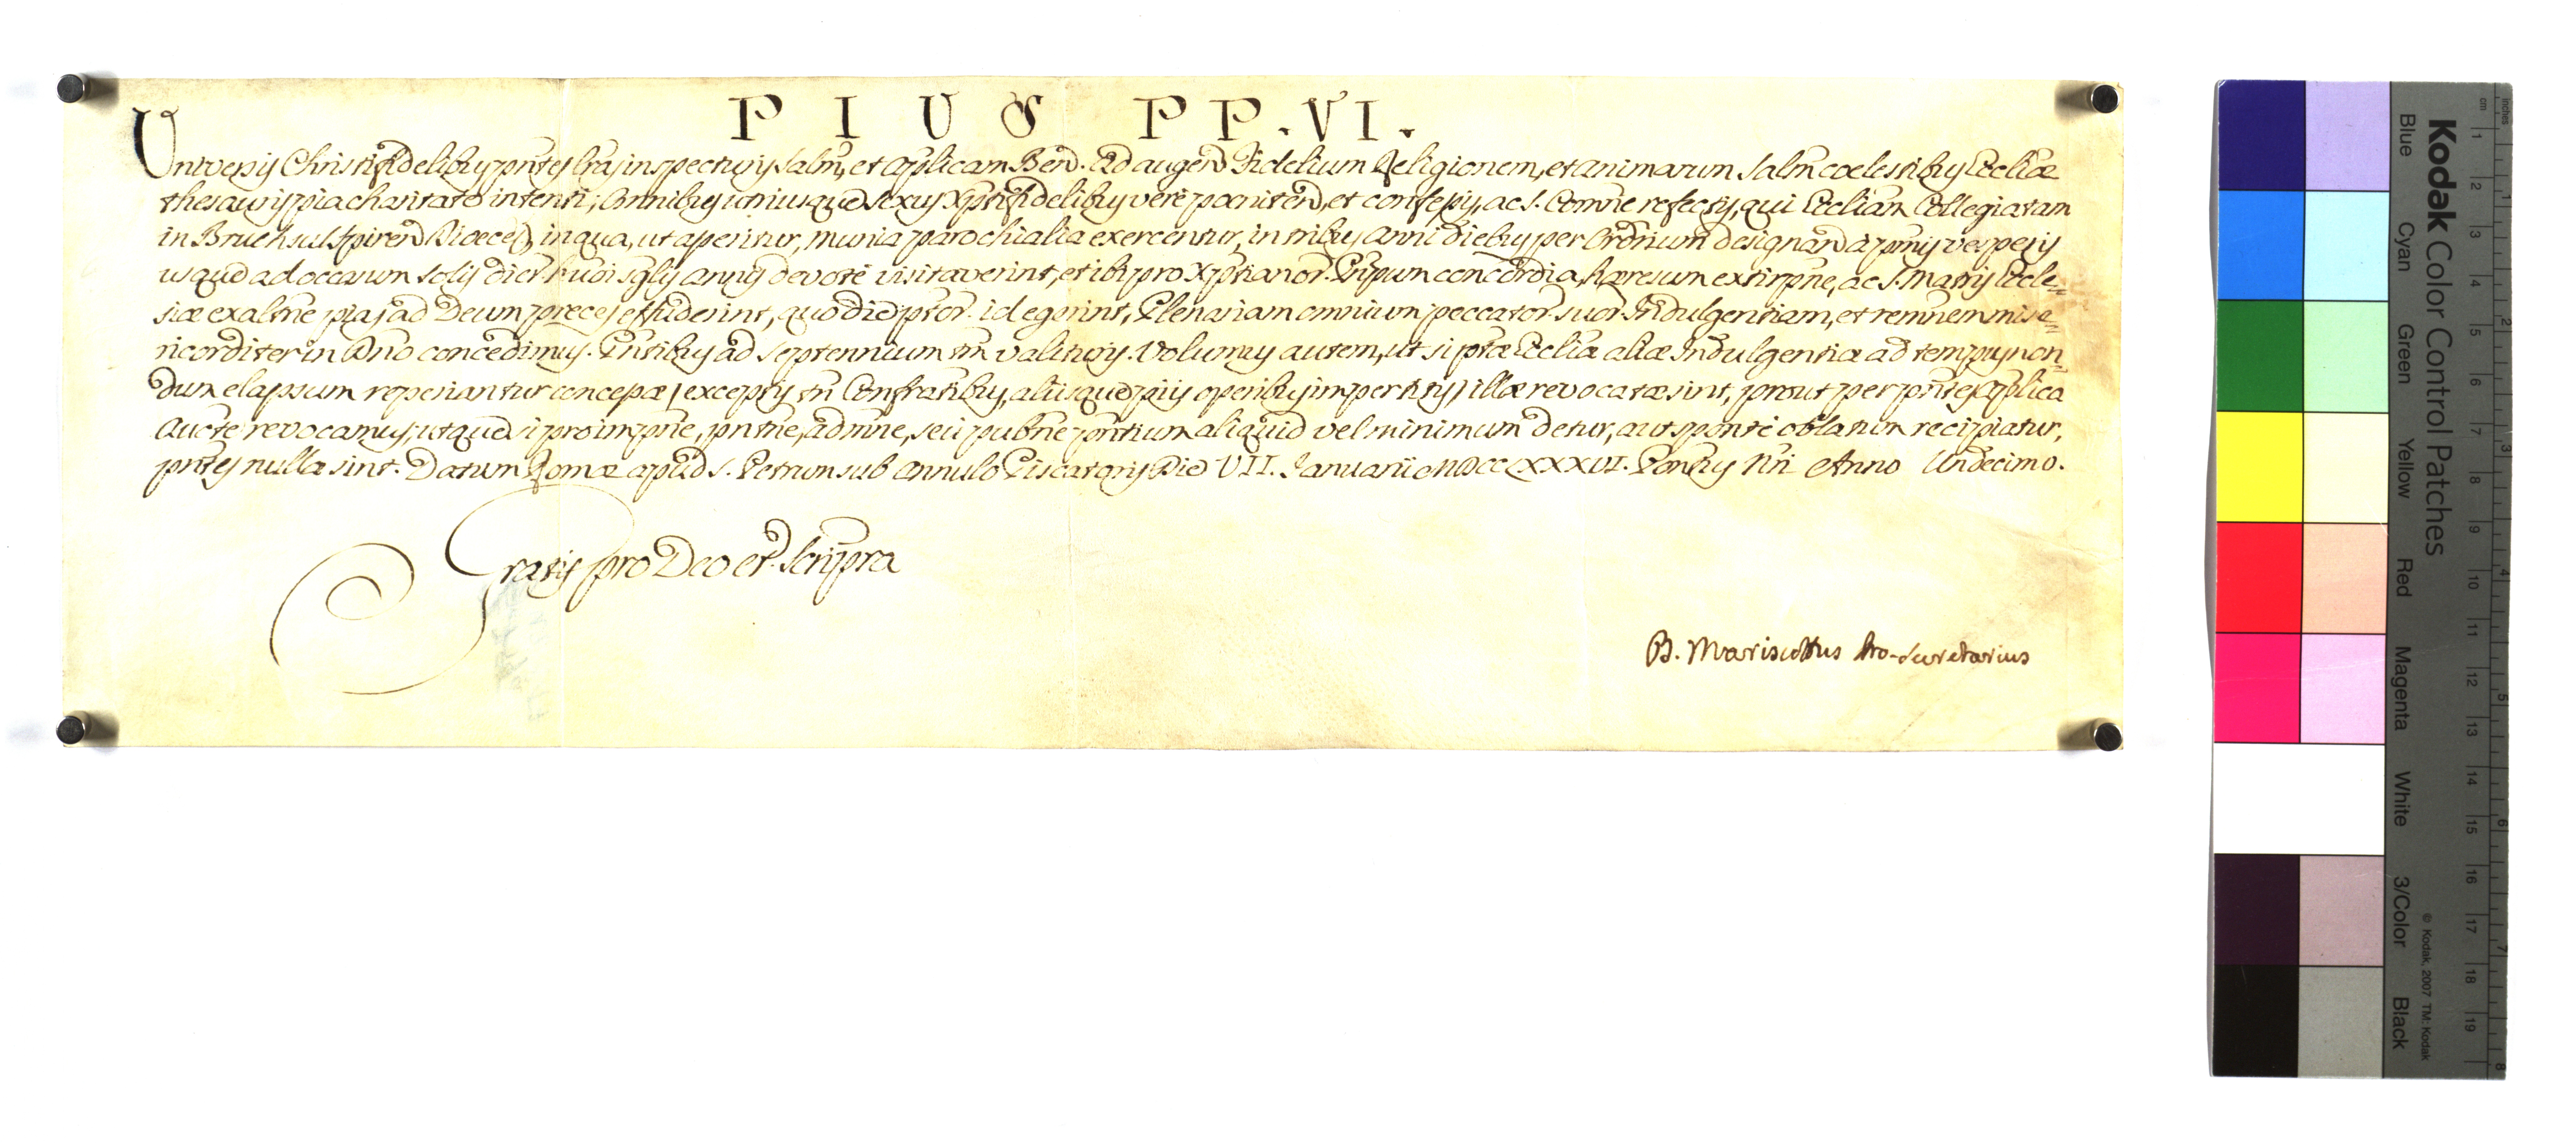 PIUS PP. VI.
Universis Christifidelibus pntes lras inspecturis salm, et aplicam Bend. Ad augend Fidelium Religionem, et animarum salm coelestibus Eccliae
thesauris pia charitate intenti, omnibus utriusque sexus Xptifidelibus vere poeniten, et confessis, ac S. Comne refectis, qui Eccliam Collegiatam
in Bruchsal Spiren Dioeces, in qua, ut asseritur, munia parochialia exercentur, in tribus anni diebus per Ordrium designan a pmis vesperis
usque ad occasum solis dier hmoi sglis annis devote visitaverint, et ibi pro Xptianor. Prpum concordia, haeresum extirpne, ac S. Matris Eccle-
siae exaltne pias ad Deum preces effuderint, quo die pfor. id egerint, Plenariam omnium peccator suor Indulgentiam, et remnem mise-
ricorditer in Dno concedimus. Pntibus ad septennium tm valituris. Volumus autem, ut si pfae Eccliae aliae Indulgentiae ad tempus non-
dum elapsum reperiantur concessae (exceptis tn Confratibus, aliisque piis operibus impertitis) illae revocatae sint, prout per pntes aplica
aucte revocamus, utque si pro impne, pntne, admne, seu pubne pntium aliquid vel minimum detur, aut sponte oblatum recipiatur,
pntes nullae sint. Datum Romae apud S. Petrum sub annulo Piscatoris Die VII. Januarii MDCCLXXXVI. Pontus Nri Anno Undecimo.
Gratis pro Deo et scriptra
B. Mariscottus Pro-Secretarius
Kodak Color Control Patches
Blue Cyan Green Yellow Red Magenta White 3/Color Black
© Kodak, 2007 TM: Kodak
cm 1 2 3 4 5 6 7 8 9 10 11 12 13 14 15 16 17 18 19
inches 1 2 3 4 5 6 7 8